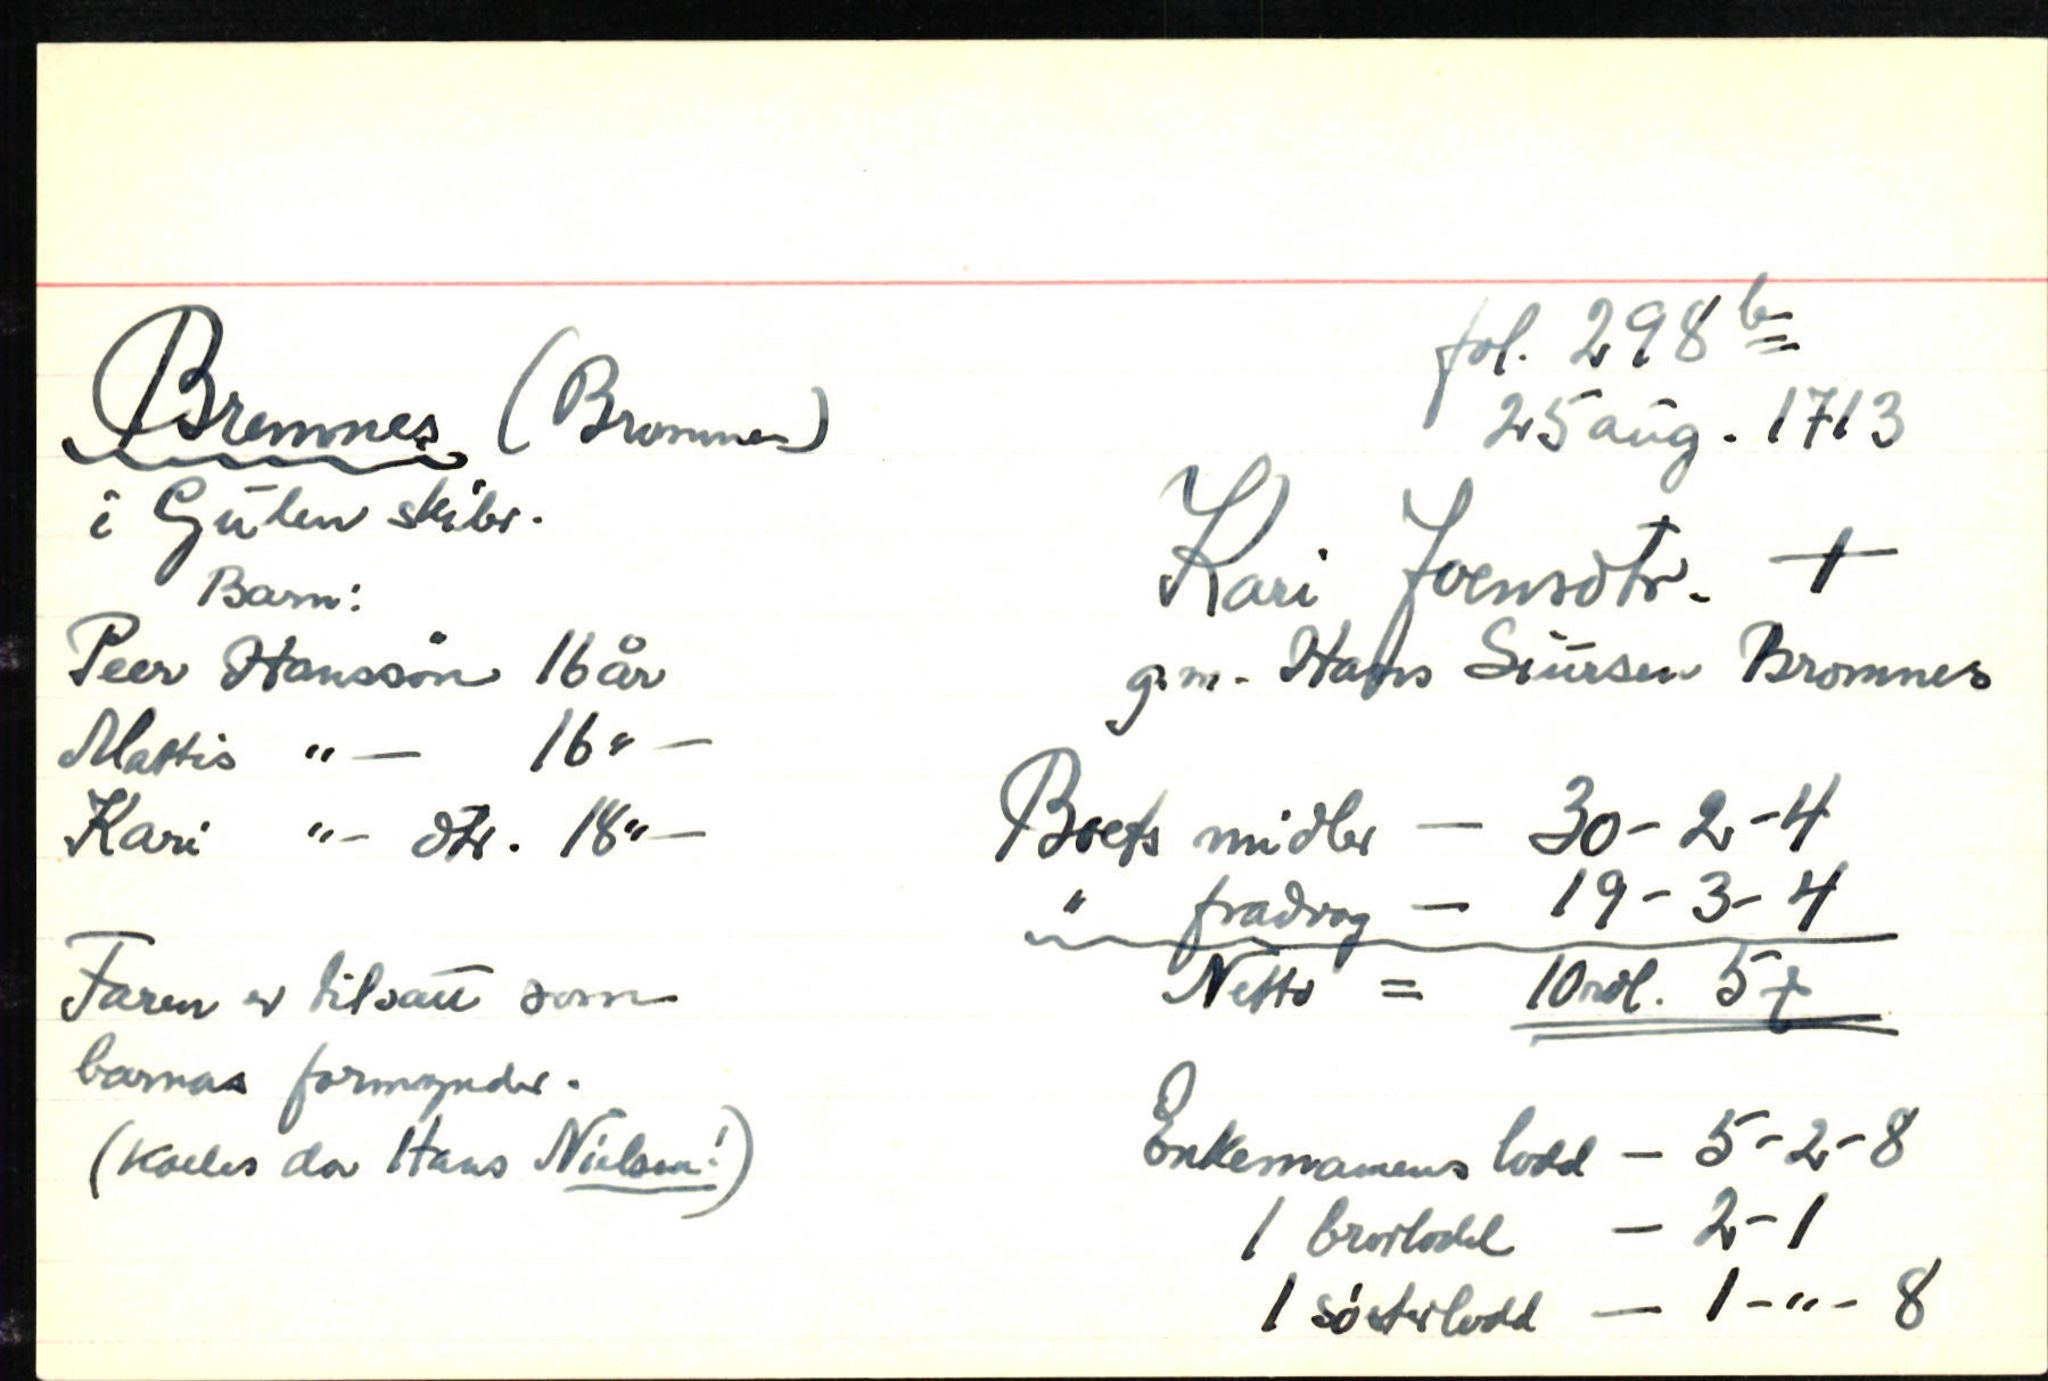 fol. 298 b
25 aug. 1713
Bremnes (Bromnes)
i Gulen skibr.
Barn:
Peer Hanssön 16 år
Mattis "— 16 "—
Kari "— dtr. 18 "—
Faren er tilsatt som
barnas formynder.
(Kalles da Hans Nielsen!)
Kari Joensdtr. +
g.m. Hans Siursen Bromnes
Boets midler — 30-2-4
" fradrag — 19-3-4
Netto = 10 rdl. 5
Enkemannens lodd — 5-2-8
1 brorlodd — 2-1
1 sösterlodd — 1-"-8